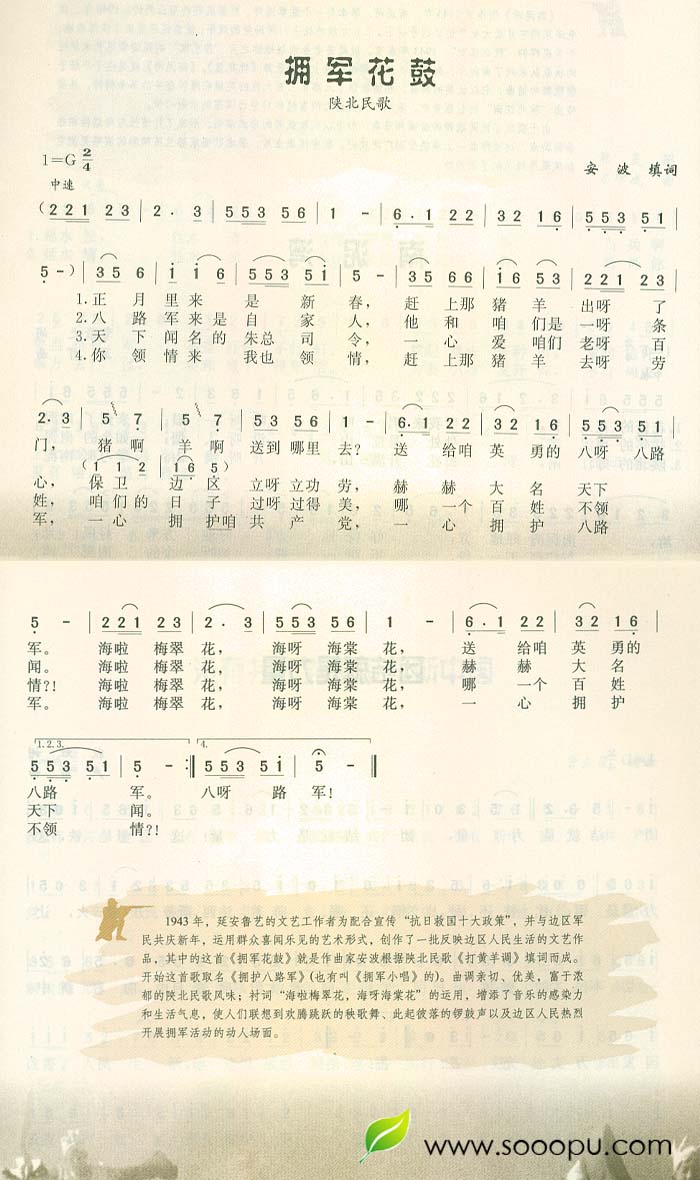 拥军花鼓
陕北民歌
1=G 2/4
中速
安 波 填词
(2 2 1 2 3 | 2 . 3 | 5 5 3 5 6 | 1 - | 6 . 1 2 2 | 3 2 1 6 | 5 5 3 5 1 |
5 - ) | 3 5 6 | i i 6 | 5 5 3 5 i | 5 - | 3 5 6 6 | i 6 5 3 | 2 2 1 2 3 |
1.正 月 里 来 是 新 春, 赶 上那 猪 羊 出呀 了
2.八 路 军 来 是 自 家 人, 他 和 咱 们是 一呀 条
3.天 下 闻 名 的 朱总 司 令, 一 心 爱 咱们 老呀 百
4.你 领 情 来 我也 领 情, 赶 上那 猪 羊 去呀 劳
2 . 3 | 5 7 | 5 7 | 5 3 5 6 | 1 - | 6 . 1 2 2 | 3 2 1 6 | 5 5 3 5 1 |
门, 猪 啊 羊 啊 送到 哪里 去? 送 给咱 英 勇的 八呀 八路
( 1 1 2 | 1 6 5 )
心, 保 卫 边 区 立呀 立功 劳, 赫 赫 大 名 天下
姓, 咱 们 的 日 子 过呀 过得 美, 哪 一个 百 姓 不领
军, 一 心 拥 护咱 共 产 党, 一 心 拥 护 八路
5 - | 2 2 1 2 3 | 2 . 3 | 5 5 3 5 6 | 1 - | 6 . 1 2 2 | 3 2 1 6 |
军。 海啦 梅翠 花, 海呀 海棠 花, 送 给咱 英 勇的
闻。 海啦 梅翠 花, 海呀 海棠 花, 赫 赫 大 名
情?! 海啦 梅翠 花, 海呀 海棠 花, 哪 一个 百 姓
军。 海啦 梅翠 花, 海呀 海棠 花, 一 心 拥 护
1.2.3. 4.
5 5 3 5 1 | 5 - :‖ 5 5 3 5 i | 5 - ‖
八路 军。 八呀 路 军!
天下 闻。
不领 情?!
1943 年，延安鲁艺的文艺工作者为配合宣传“抗日救国十大政策”，并与边区军
民共庆新年，运用群众喜闻乐见的艺术形式，创作了一批反映边区人民生活的文艺作
品，其中的这首《拥军花鼓》就是作曲家安波根据陕北民歌《打黄羊调》填词而成。
开始这首歌取名《拥护八路军》(也有叫《拥军小唱》的)。曲调亲切、优美，富于浓
郁的陕北民歌风味；衬词“海啦梅翠花，海呀海棠花”的运用，增添了音乐的感染力
和生活气息，使人们联想到欢腾跳跃的秧歌舞、此起彼落的锣鼓声以及边区人民热烈
开展拥军活动的动人场面。
www.sooopu.com